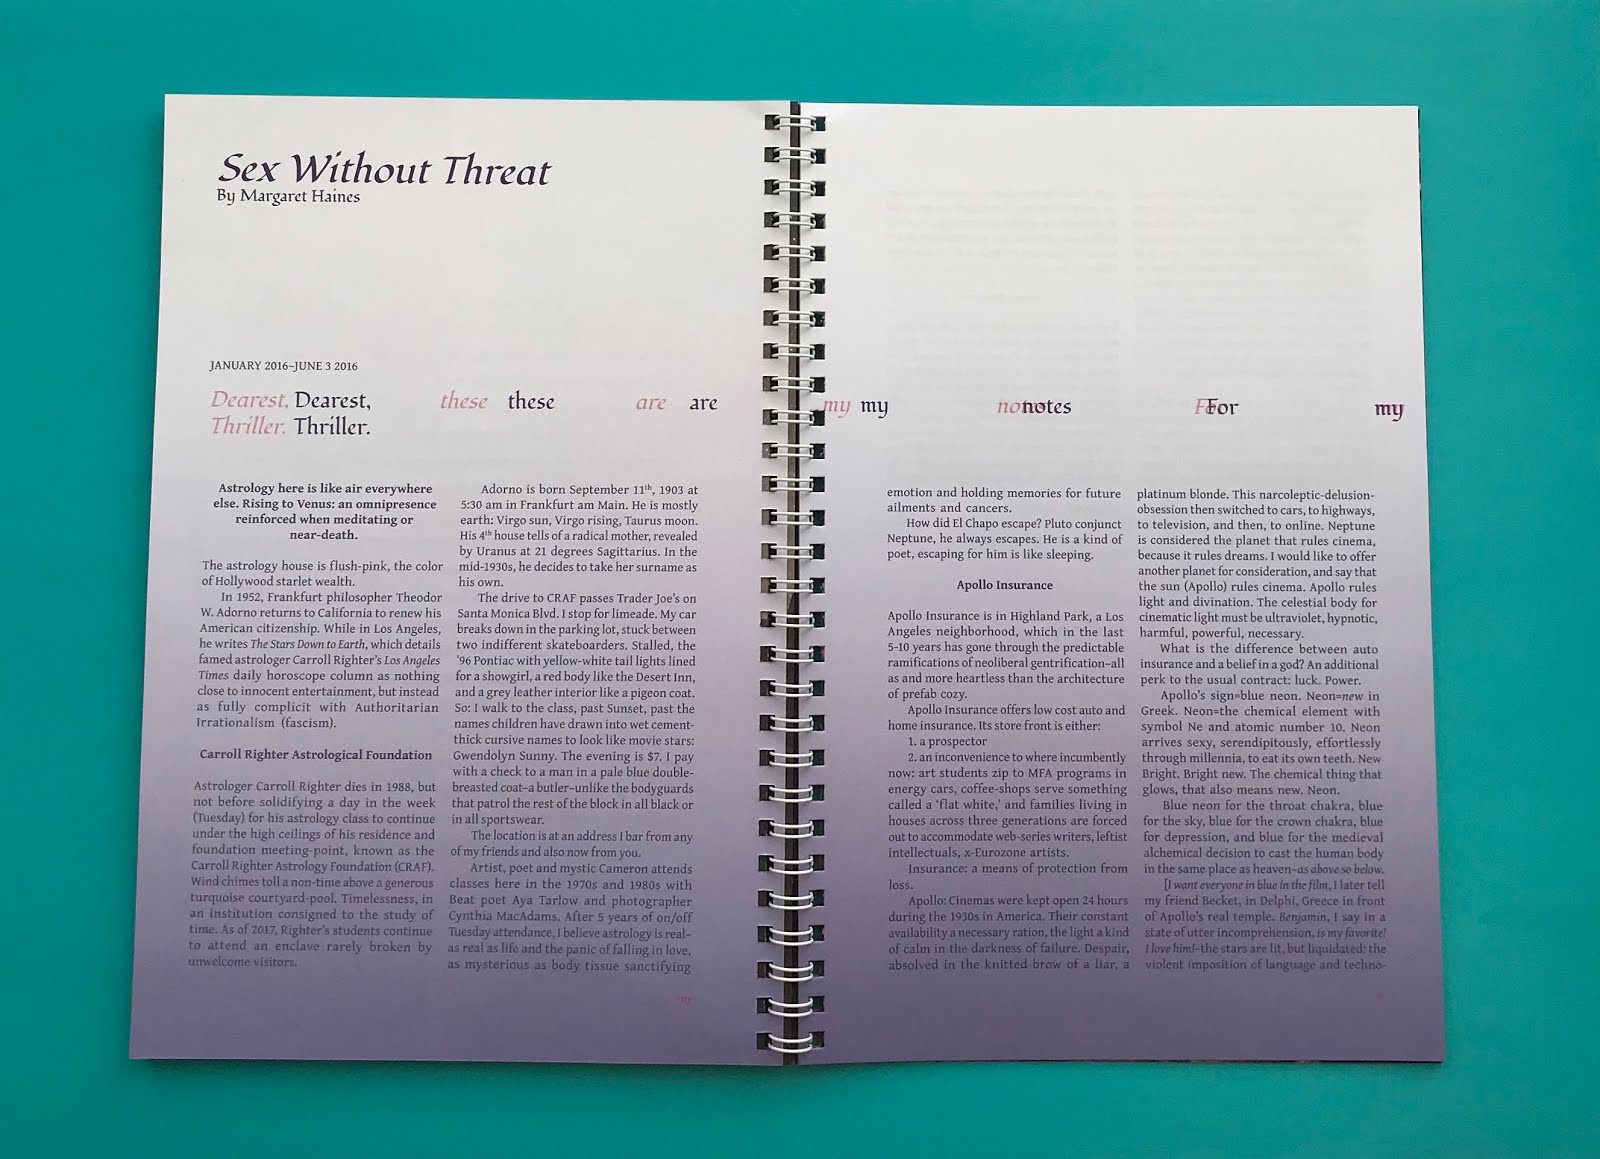 Sex Without Threat
By Margaret Haines
JANUARY 2016–JUNE 3 2016
Dearest, Dearest, these these are are my my notes notes For For my
Thriller. Thriller.
Astrology here is like air everywhere
else. Rising to Venus: an omnipresence
reinforced when meditating or
near-death.
The astrology house is flush-pink, the color
of Hollywood starlet wealth.
In 1952, Frankfurt philosopher Theodor
W. Adorno returns to California to renew his
American citizenship. While in Los Angeles,
he writes The Stars Down to Earth, which details
famed astrologer Carroll Righter's Los Angeles
Times daily horoscope column as nothing
close to innocent entertainment, but instead
as fully complicit with Authoritarian
Irrationalism (fascism).
Carroll Righter Astrological Foundation
Astrologer Carroll Righter dies in 1988, but
not before solidifying a day in the week
(Tuesday) for his astrology class to continue
under the high ceilings of his residence and
foundation meeting-point, known as the
Carroll Righter Astrology Foundation (CRAF).
Wind chimes toll a non-time above a generous
turquoise courtyard-pool. Timelessness, in
an institution consigned to the study of
time. As of 2017, Righter's students continue
to attend an enclave rarely broken by
unwelcome visitors.
Adorno is born September 11th, 1903 at
5:30 am in Frankfurt am Main. He is mostly
earth: Virgo sun, Virgo rising, Taurus moon.
His 4th house tells of a radical mother, revealed
by Uranus at 21 degrees Sagittarius. In the
mid-1930s, he decides to take her surname as
his own.
The drive to CRAF passes Trader Joe's on
Santa Monica Blvd. I stop for limeade. My car
breaks down in the parking lot, stuck between
two indifferent skateboarders. Stalled, the
'96 Pontiac with yellow-white tail lights lined
for a showgirl, a red body like the Desert Inn,
and a grey leather interior like a pigeon coat.
So: I walk to the class, past Sunset, past the
names children have drawn into wet cement–
thick cursive names to look like movie stars:
Gwendolyn Sunny. The evening is $7. I pay
with a check to a man in a pale blue double-
breasted coat–a butler–unlike the bodyguards
that patrol the rest of the block in all black or
in all sportswear.
The location is at an address I bar from any
of my friends and also now from you.
Artist, poet and mystic Cameron attends
classes here in the 1970s and 1980s with
Beat poet Aya Tarlow and photographer
Cynthia MacAdams. After 5 years of on/off
Tuesday attendance, I believe astrology is real–
as real as life and the panic of falling in love,
as mysterious as body tissue sanctifying
emotion and holding memories for future
ailments and cancers.
How did El Chapo escape? Pluto conjunct
Neptune, he always escapes. He is a kind of
poet, escaping for him is like sleeping.
Apollo Insurance
Apollo Insurance is in Highland Park, a Los
Angeles neighborhood, which in the last
5-10 years has gone through the predictable
ramifications of neoliberal gentrification–all
as and more heartless than the architecture
of prefab cozy.
Apollo Insurance offers low cost auto and
home insurance. Its store front is either:
1. a prospector
2. an inconvenience to where incumbently
now: art students zip to MFA programs in
energy cars, coffee-shops serve something
called a 'flat white,' and families living in
houses across three generations are forced
out to accommodate web-series writers, leftist
intellectuals, x-Eurozone artists.
Insurance: a means of protection from
loss.
Apollo: Cinemas were kept open 24 hours
during the 1930s in America. Their constant
availability a necessary ration, the light a kind
of calm in the darkness of failure. Despair,
absolved in the knitted brow of a liar, a
platinum blonde. This narcoleptic-delusion-
obsession then switched to cars, to highways,
to television, and then, to online. Neptune
is considered the planet that rules cinema,
because it rules dreams. I would like to offer
another planet for consideration, and say that
the sun (Apollo) rules cinema. Apollo rules
light and divination. The celestial body for
cinematic light must be ultraviolet, hypnotic,
harmful, powerful, necessary.
What is the difference between auto
insurance and a belief in a god? An additional
perk to the usual contract: luck. Power.
Apollo's sign=blue neon. Neon=new in
Greek. Neon=the chemical element with
symbol Ne and atomic number 10. Neon
arrives sexy, serendipitously, effortlessly
through millennia, to eat its own teeth. New
Bright. Bright new. The chemical thing that
glows, that also means new. Neon.
Blue neon for the throat chakra, blue
for the sky, blue for the crown chakra, blue
for depression, and blue for the medieval
alchemical decision to cast the human body
in the same place as heaven–as above so below.
[I want everyone in blue in the film, I later tell
my friend Becket, in Delphi, Greece in front
of Apollo's real temple. Benjamin, I say in a
state of utter incomprehension, is my favorite!
I love him!–the stars are lit, but liquidated: the
violent imposition of language and techno-